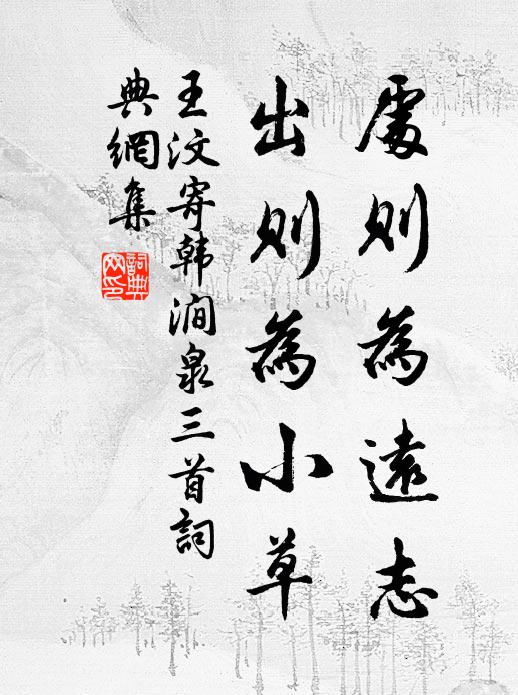 處則為遠志
出則為小草
王汶寄韩澗泉三首詞
典網集
詞典
网印